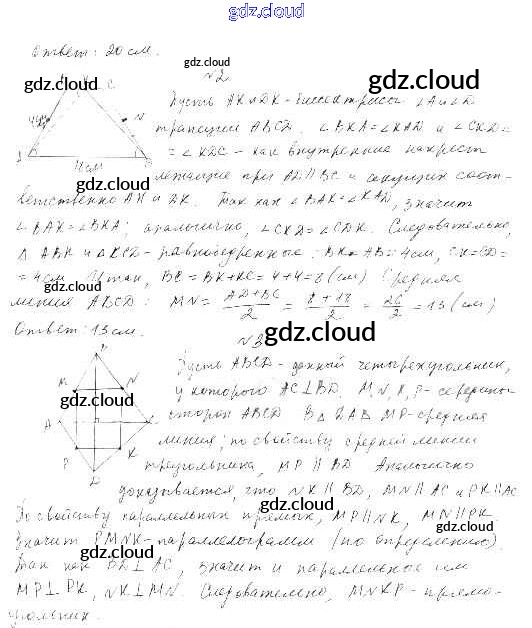 gdz.cloud
Ответ: 20 см.
gdz.cloud
№2
gdz.cloud
gdz.cloud
Пусть AK и DK - биссектрисы ∠A и ∠D
трапеции ABCD. ∠BKA = ∠KAD и ∠CKD =
= ∠KDC - как внутренние накрест
лежащие при AD || BC и секущих соот-
gdz.cloud
ветственно AK и DK. Так как ∠BAK = ∠KAD, значит
∠BAK = ∠BKA; аналогично, ∠CKD = ∠CDK. Следовательно,
△ ABK и △KCD - равнобедренные: BK = AB = 4см, CK = CD =
= 4см. Итак, BC = BK + KC = 4 + 4 = 8 (см). Средняя
gdz.cloud
линия ABCD: MN = AD+BC/2 = 8+18/2 = 26/2 = 13 (см)
Ответ: 13 см.
№3
gdz.cloud
Пусть ABCD - данный четырехугольник,
у которого AC ⊥ BD. M, N, K, P - середины
gdz.cloud
сторон ABCD В △ DAB MP - средняя
линия; по свойству средней линии
треугольника, MP || BD Аналогично
доказывается, что NK || BD, MN || AC и PK || AC
gdz.cloud
По свойству параллельных прямых, MP || NK, MN || PK
gdz.cloud
Значит PMNK - параллелограмм (по определению).
gdz.cloud
Так как BD ⊥ AC, значит и параллельные им
MP ⊥ PK, NK ⊥ MN. Следовательно, MNKP - прямо-
gdz.cloud
угольник.